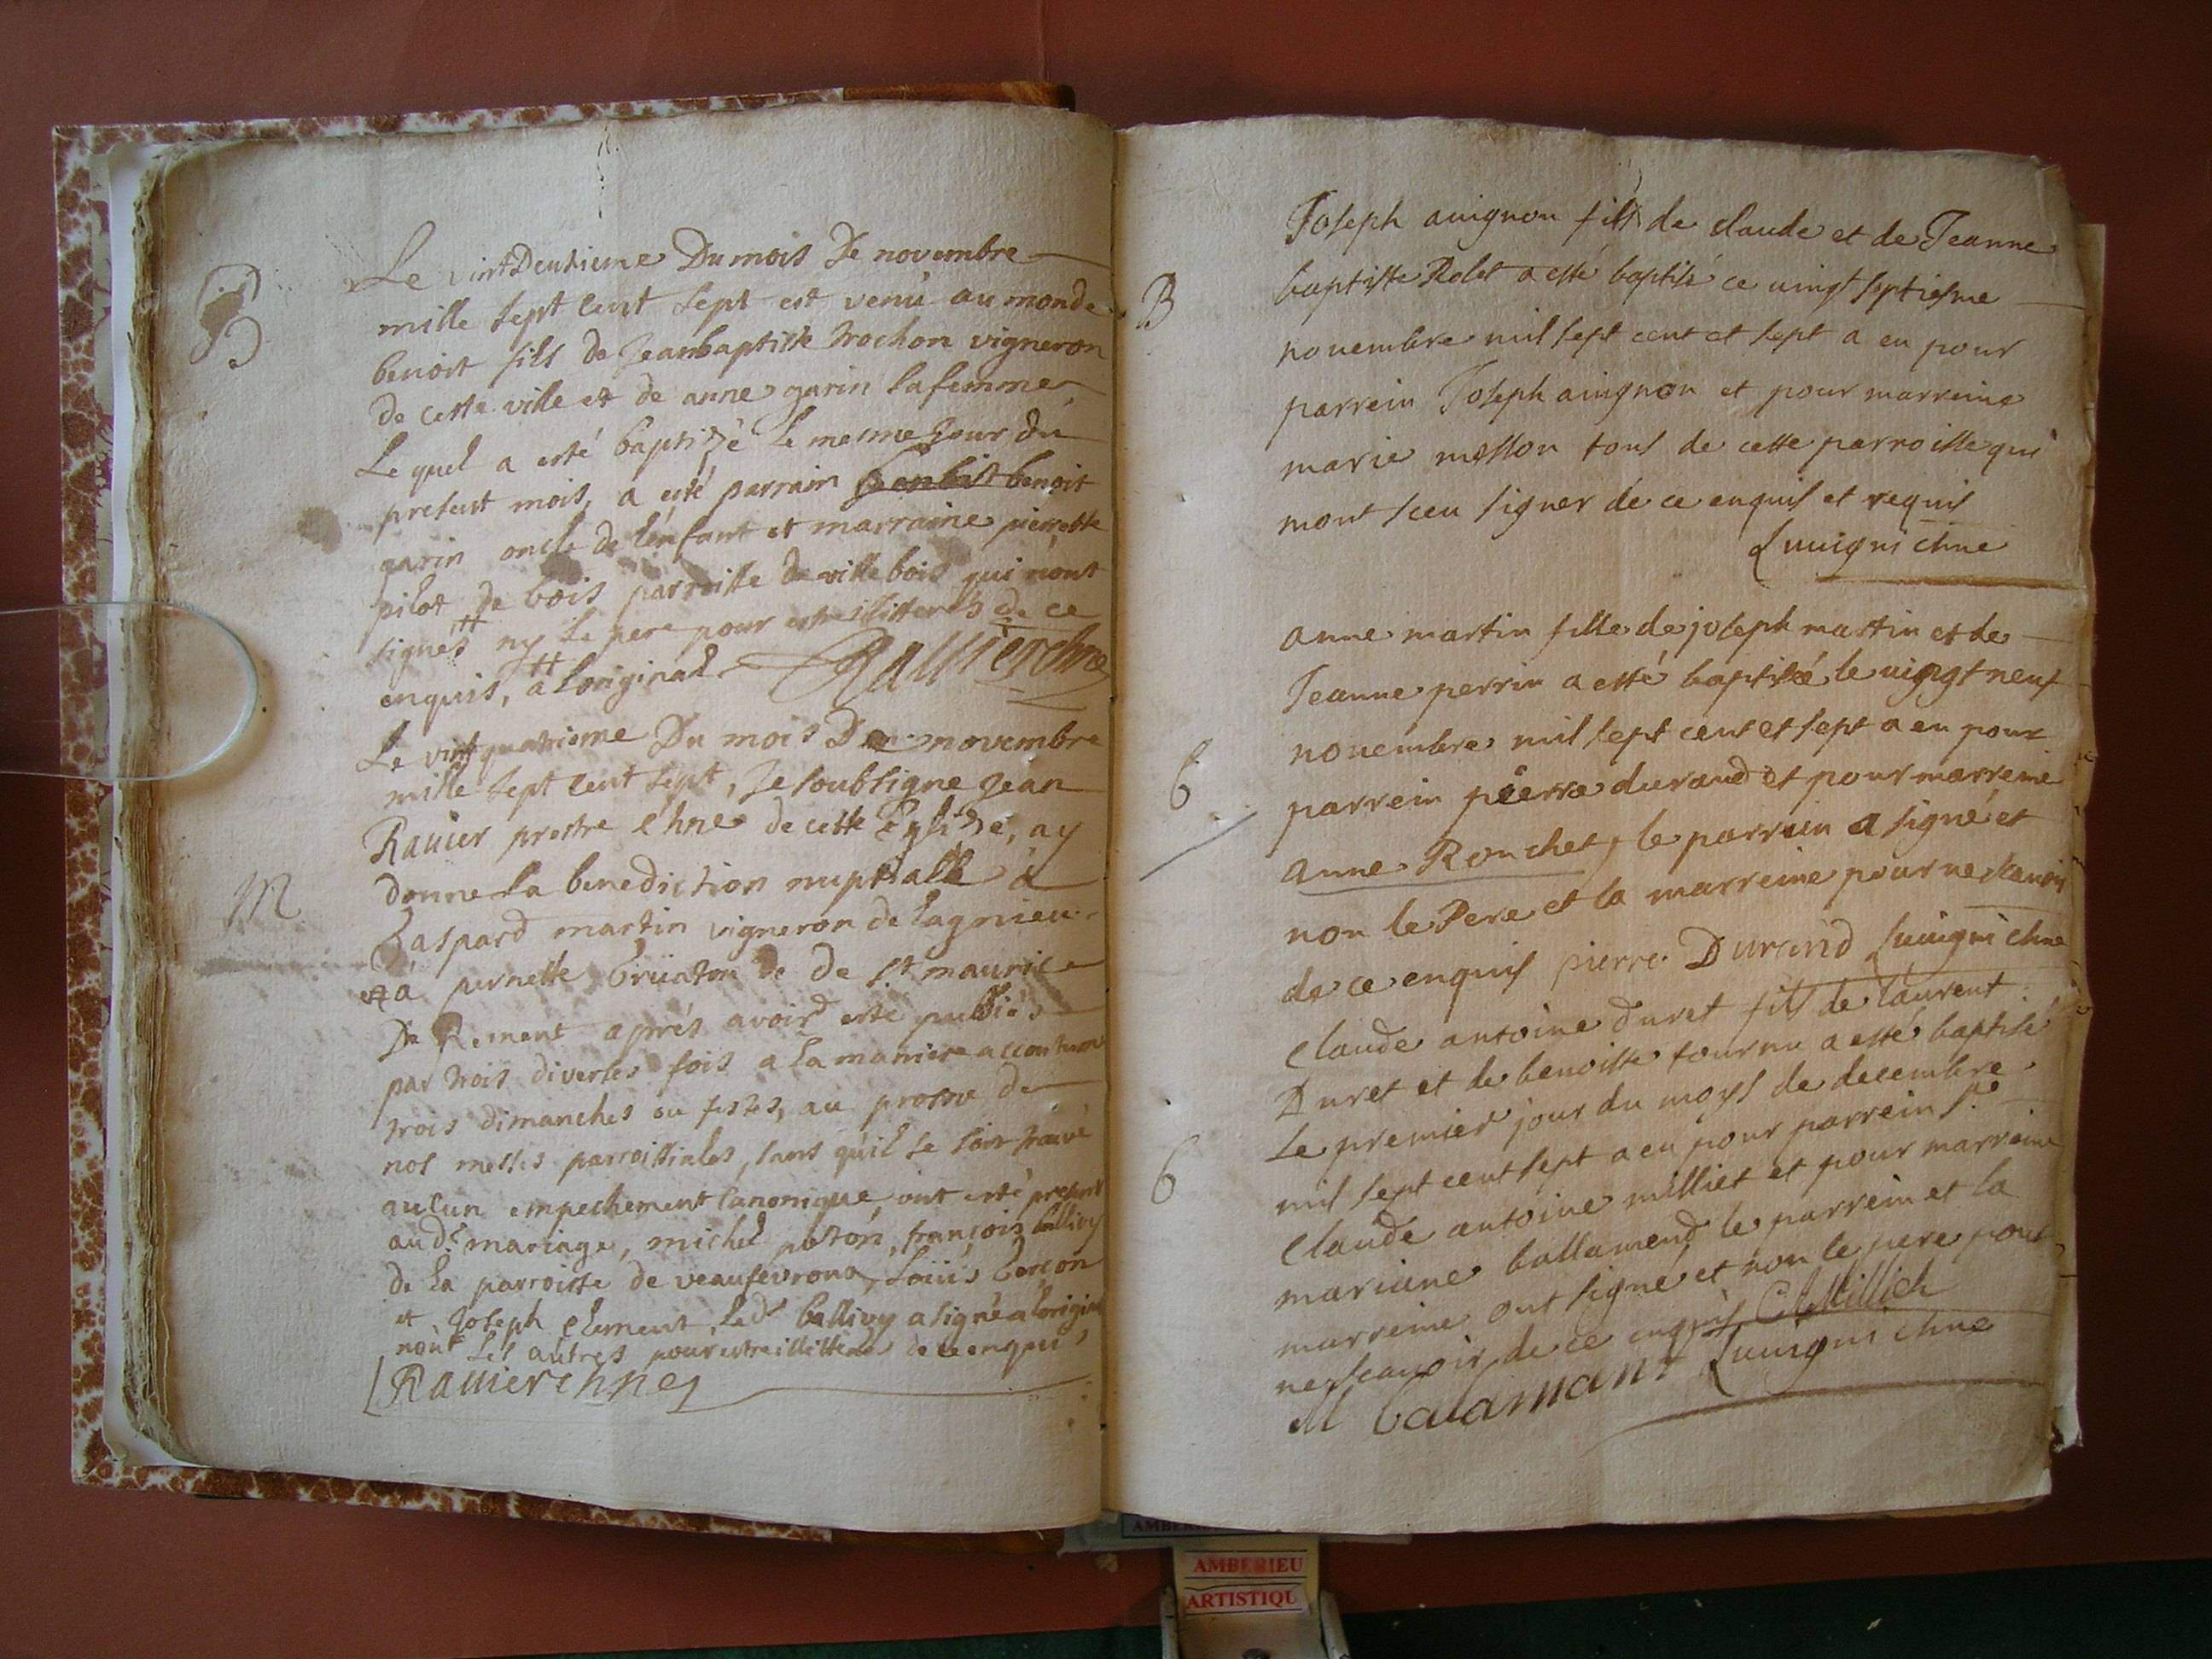 B
Le vintDeusieme Du mois De novembre
mille sept cent sept est venu au monde
benoit fils de Jeanbaptiste trochon vigneron
de cette ville et de anne garin sa femme
Le quel a esté baptizé le mesme jour du
present mois, a esté parrain benoit
garin oncle de l'enfant et marraine pierrette
pilot de bois parroisse de villebois qui n'ont
signés ny le pere pour estre illitterés de ce
enquis, a l'original Rauier chne
M
Le vintquatrieme Du mois De novembre
mille sept cent sept, Je soubsigne Jean
Rauier prestre chne de cette Eglise, ay
donne la benediction nuptialle a
Gaspard martin vigneron de lagnieu
et a pernette de St maurice
De Rement aprés avoir esté publiés
par trois diverses fois a la maniere accoutumé
trois dimanches ou festes, au prosne de
nos messes parroissiales, sans qu'il se soit trouvé
aucun empechement canonique, ont esté present
aud.t mariage, michel poton, françois ballivy
de la parroisse de veaufevroux, Loüis berson
et Joseph clement, led.t ballivy a signé a l'original
non les autres pour estre illitterés de ce enquis
Rauier chne
B
Joseph auignon fils de claude et de Jeanne
baptiste Rolet a esté baptisé ce uingt septiesme
nouembre mil sept cent et sept a eu pour
parrein Joseph auignon et pour marreine
marie tous de cette parroisse qui
n'ont sceu signer de ce enquis et requis
Luuigni chne
6
anne martin fille de joseph martin et de
Jeanne perrin a esté baptisé le uingt neuf
nouembre mil sept cent et sept a eu pour
parrein pierre durand et pour marreine
anne Ronchet, le parrein a signé et
non le Pere et la marreine pour ne scauoir
de ce enquis pierre Durand Luuigni chne
6
claude antoine duret fils de laurent
Duret et de benoiste tournu a esté baptisé
le premier jour du moys de decembre
mil sept cent sept a eu pour parrein Sr
claude antoine milliet et pour marreine
mariane ballamend le parrein et la
marreine ont signé et non le pere pour
ne scauoir de ce enquis C A Milliet
M balamant Luuigni chne
AMBERIEU
ARTISTIQU